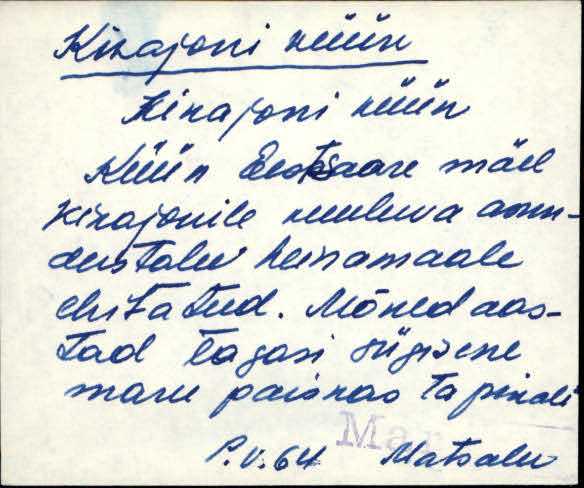 Kirajoni küün
Kirajoni küün
Küün Eestsaare mäel
Kirajonile kuuluva asun-
dustalu heinamaale
ehitatud. Mõned aas-
tad tagasi sügisene
maru paiskas ta pikali
Mar
P.V.64 Matsalu